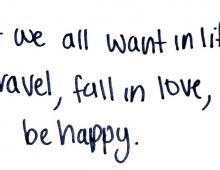 we all want in li
ravel, fall in love,
be happy.